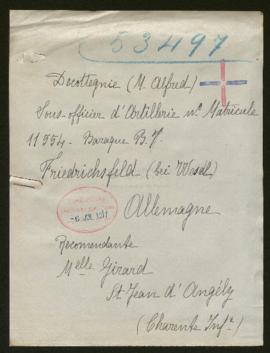 53497
Decottegnie (M. Alfred)
Sous-officier d'Artillerie nº Matricule
11554 - Baraque B.7.
Friedrichsfeld (bei Wesel)
Allemagne
Recomendante
Melle Girard
St Jean d'Angély
(Charente Infre)